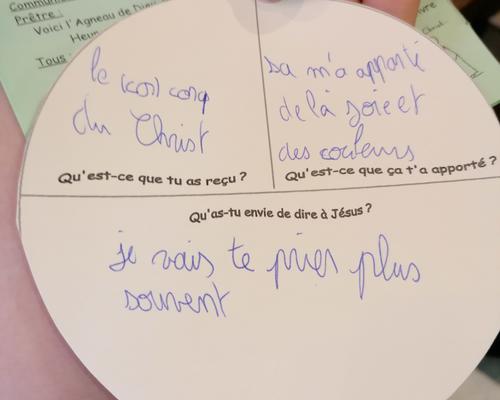 Prêtre :
Voici l'Agneau de Dieu
Heur
Tous :
le (cor) corq
du Christ
Qu'est-ce que tu as reçu ?
sa m'a apporté
de la joie et
des couleurs
Qu'est-ce que ça t'a apporté ?
Qu'as-tu envie de dire à Jésus ?
je vais te prier plus
souvent